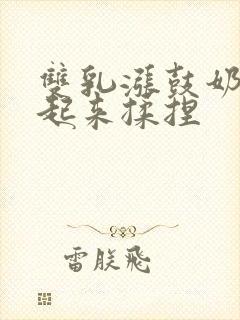 雙乳漲鼓奶
起來揉捏
雷朕飛